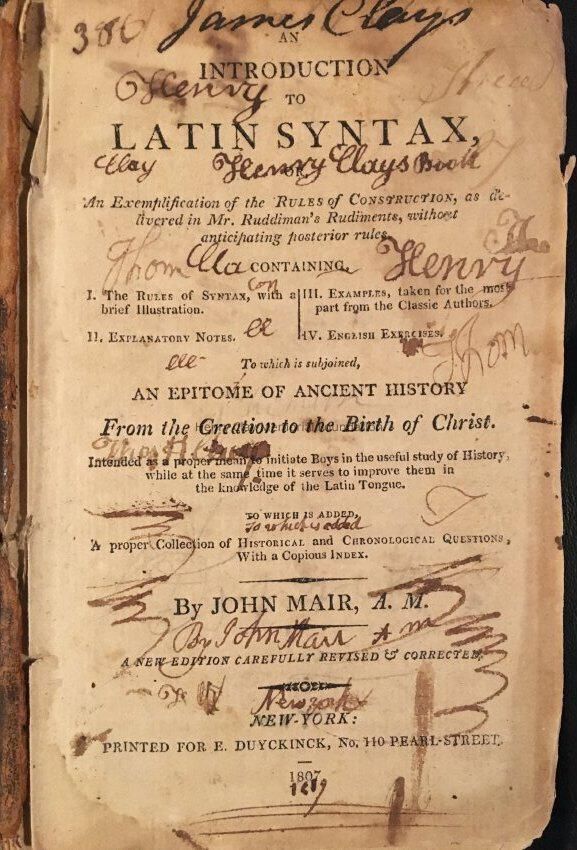 386 James Clays
AN
INTRODUCTION
Henry
TO
LATIN SYNTAX,
Clay Henry Clays Book
OR,
An Exemplification of the RULES of CONSTRUCTION, as de-
livered in Mr. Ruddiman's Rudiments, without
anticipating posterior rules.
Thom Cla CONTAINING, Henry
con
I. The RULES of SYNTAX, with a brief Illustration.
II. EXPLANATORY NOTES.
III. EXAMPLES, taken for the most part from the Classic Authors.
IV. ENGLISH EXERCISES.
Thom
To which is subjoined,
AN EPITOME OF ANCIENT HISTORY
From the Creation to the Birth of Christ.
Intended as a proper mean to initiate Boys in the useful study of History,
while at the same time it serves to improve them in
the knowledge of the Latin Tongue.
TO WHICH IS ADDED,
To which is added
A proper Collection of HISTORICAL and CHRONOLOGICAL QUESTIONS,
With a Copious INDEX.
By JOHN MAIR, A. M.
By John Mair A m
A NEW EDITION CAREFULLY REVISED & CORRECTED.
New york
NEW-YORK:
PRINTED FOR E. DUYCKINCK, No. 110 PEARL-STREET.
1807